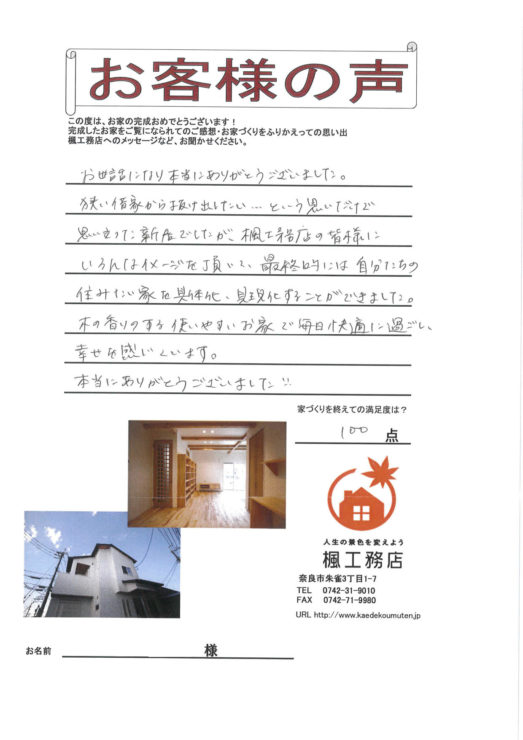 お客様の声
この度は、お家の完成おめでとうございます！
完成したお家をご覧になられてのご感想・お家づくりをふりかえっての思い出
楓工務店へのメッセージなど、お聞かせください。
お世話になり本当にありがとうございました。
狭い借家から抜け出したい…という思いだけで
思い立った新居でしたが、楓工務店の皆様に
いろんなイメージを頂いて、最終的には自分たちの
住みたい家を具体化、具現化することができました。
木の香りのする使いやすいお家で毎日快適に過ごし、
幸せを感じています。
本当にありがとうございました!!
家づくりを終えての満足度は？
100 点
人生の景色を変えよう
楓工務店
奈良市朱雀3丁目1-7
TEL 0742-31-9010
FAX 0742-71-9980
URL http://www.kaedekoumuten.jp
お名前 様